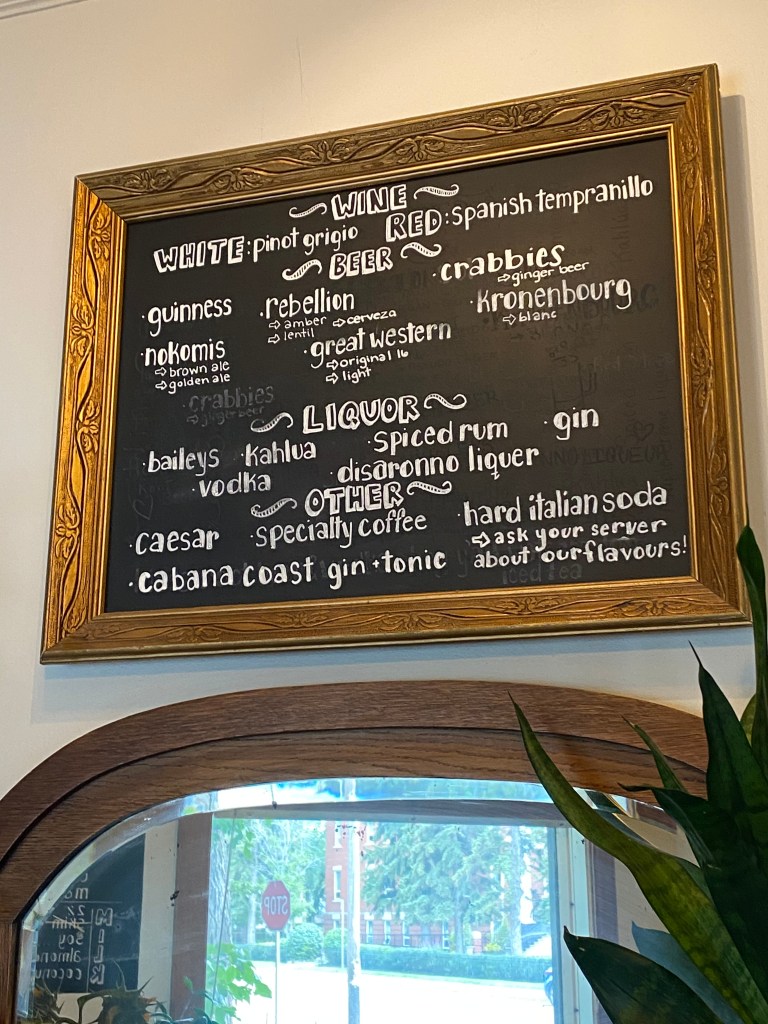 WINE
WHITE: pinot grigio RED: spanish tempranillo
BEER
·guinness ·rebellion ·crabbies
⇨ginger beer
⇨amber ⇨cerveza
⇨lentil
·kronenbourg
⇨blanc
·nokomis
⇨brown ale
⇨golden ale
·great western
⇨original 16
⇨light
·crabbies
⇨ginger beer
LIQUOR
·baileys ·kahlua ·spiced rum ·gin
·vodka ·disaronno liquer
OTHER
·caesar ·specialty coffee ·hard italian soda
⇨ask your server
about our flavours!
·cabana coast gin + tonic
iced tea
STOP
MILK
skim
soy
almond
coconut